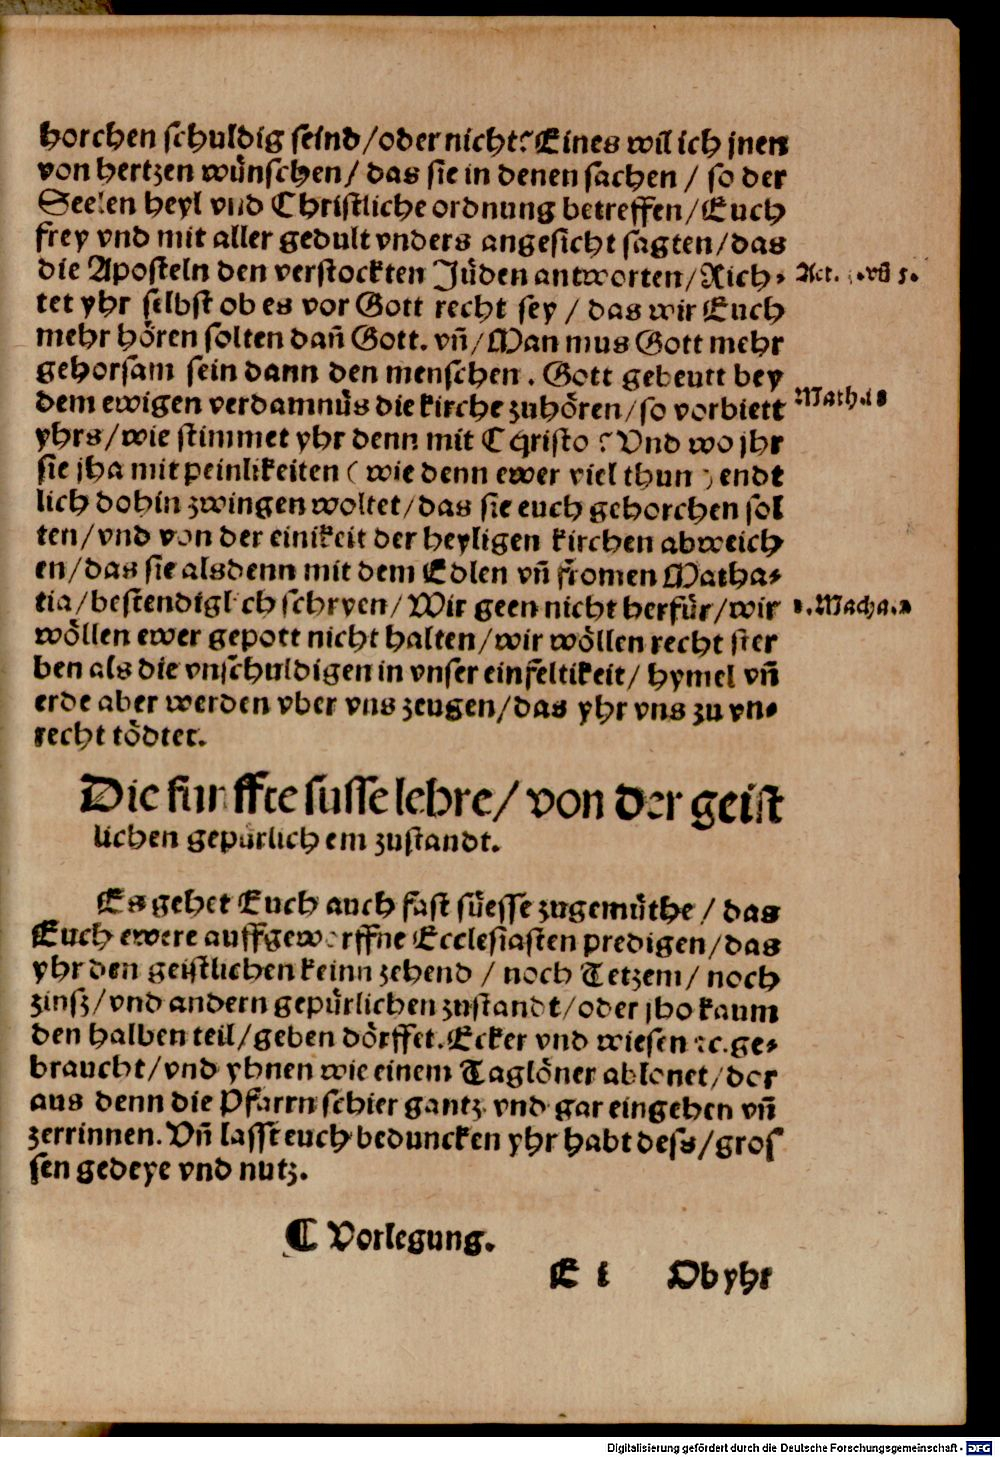 horchen schuldig seind/oder nicht? Eines wil ich jnen
von hertzen wünschen/ das sie in denen sachen / so der
Seelen heyl vnd Christliche ordnung betreffen/Euch
frey vnd mit aller gedult vnders angesicht sagten/das
die Aposteln den verstockten Jüden antworten/Rich-
Act. vñ 5.
tet yhr selbst ob es vor Gott recht sey / das wir Euch
mehr hören solten dañ Gott. vñ/Man mus Gott mehr
gehorsam sein dann den menschen. Gott gebeutt bey
dem ewigen verdamnüs die kirche zuhören/so vorbiett
Math.
yhrs/wie stimmet yhr denn mit Christo? Vnd wo jhr
sie jha mit peinlikeiten (wie denn ewer viel thun) endt
lich dohin zwingen woltet/das sie euch gehorchen sol
ten/vnd von der einikeit der heyligen kirchen abweich
en/das sie alsdenn mit dem Edlen vñ fromen Matha-
tia/bestendiglich schryen/Wir geen nicht herfür/wir
.Macha.
wöllen ewer gepott nicht halten/wir wöllen recht ster
ben als die vnschuldigen in vnser einfeltikeit/ hymel vñ
erde aber werden vber vns zeugen/das yhr vns zu vn-
recht tödtet.
Die funffte susse lehre/von der geist
lichen gepürlichem zustandt.
Es gehet Euch auch fast süesse zugemüthe/ das
Euch ewere auffgeworffne Ecclesiasten predigen/das
yhr den geistlichen keinn zehend / noch Tetzem/ noch
zinsz/vnd andern gepürlichen zustandt/oder jho kaum
den halben teil/geben dörffet. Ecker vnd wiesen ⁊c. ge-
braucht/vnd yhnen wie einem Taglöner ablonet/dor
aus denn die Pfarrn schier gantz vnd gar eingehen vñ
zerrinnen. Vñ lasst euch beduncken yhr habt dess/gros
sen gedeye vnd nutz.
¶ Vorlegung.
E i Ob yhr
Digitalisierung gefördert durch die Deutsche Forschungsgemeinschaft - DFG